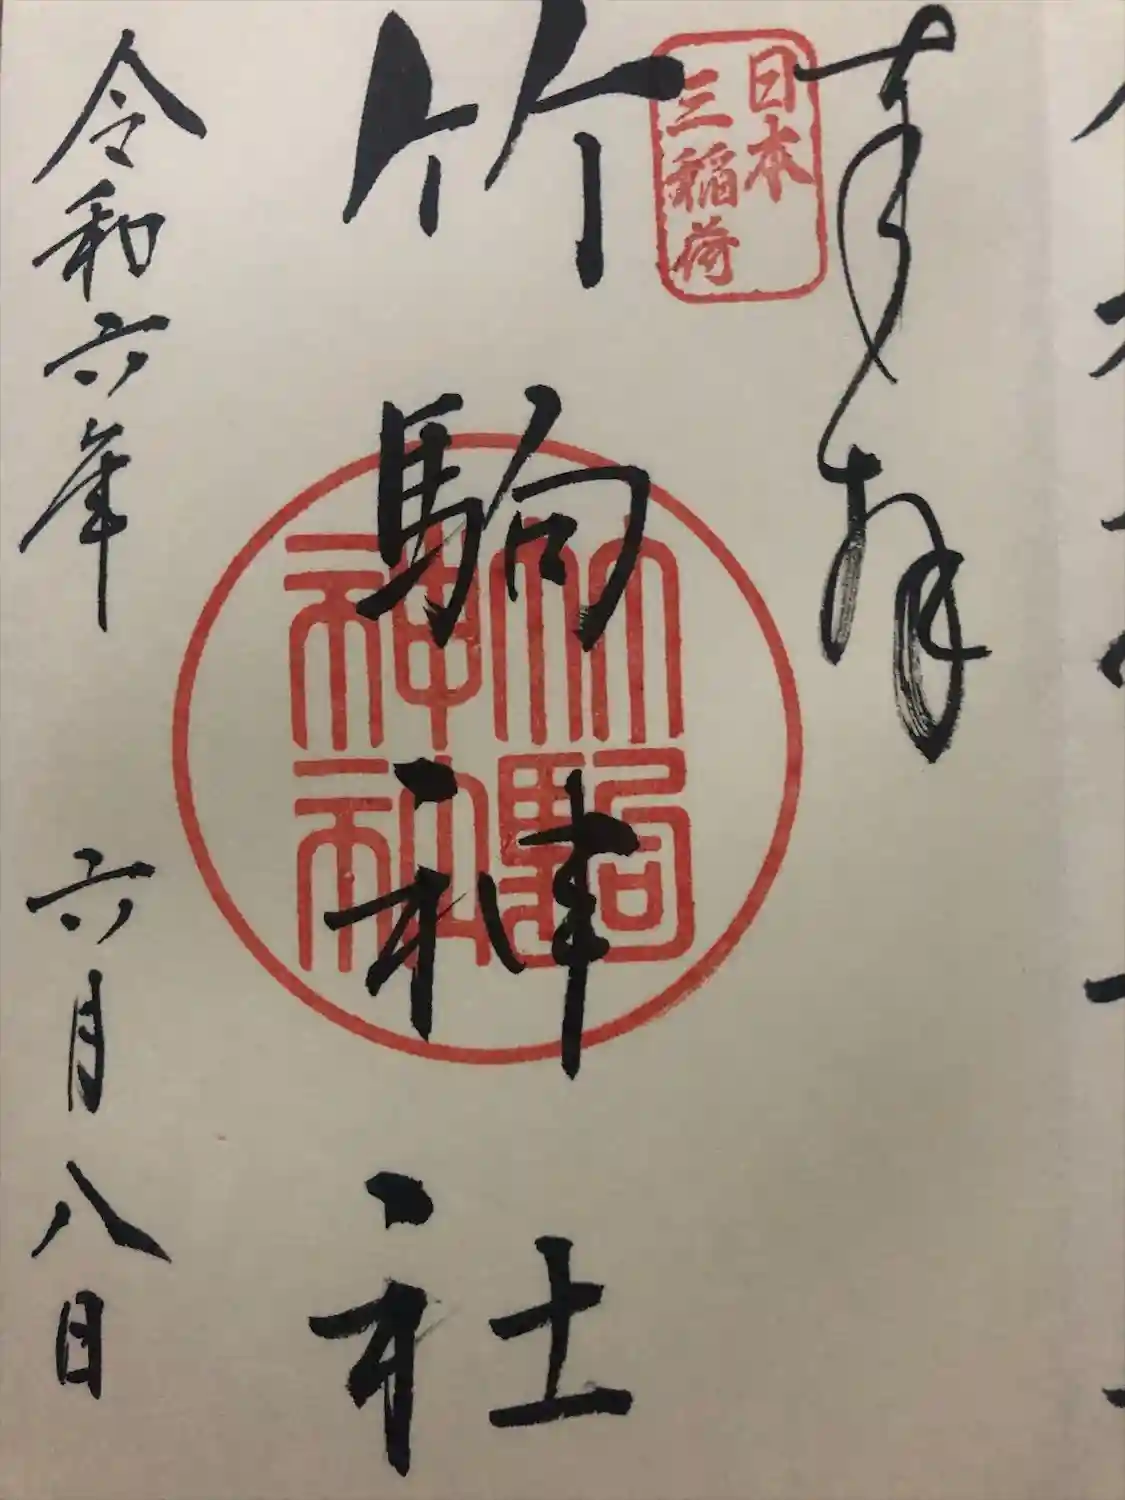 奉拝
日本
三稲荷
竹駒神社
竹駒
神社
令和六年 六月八日